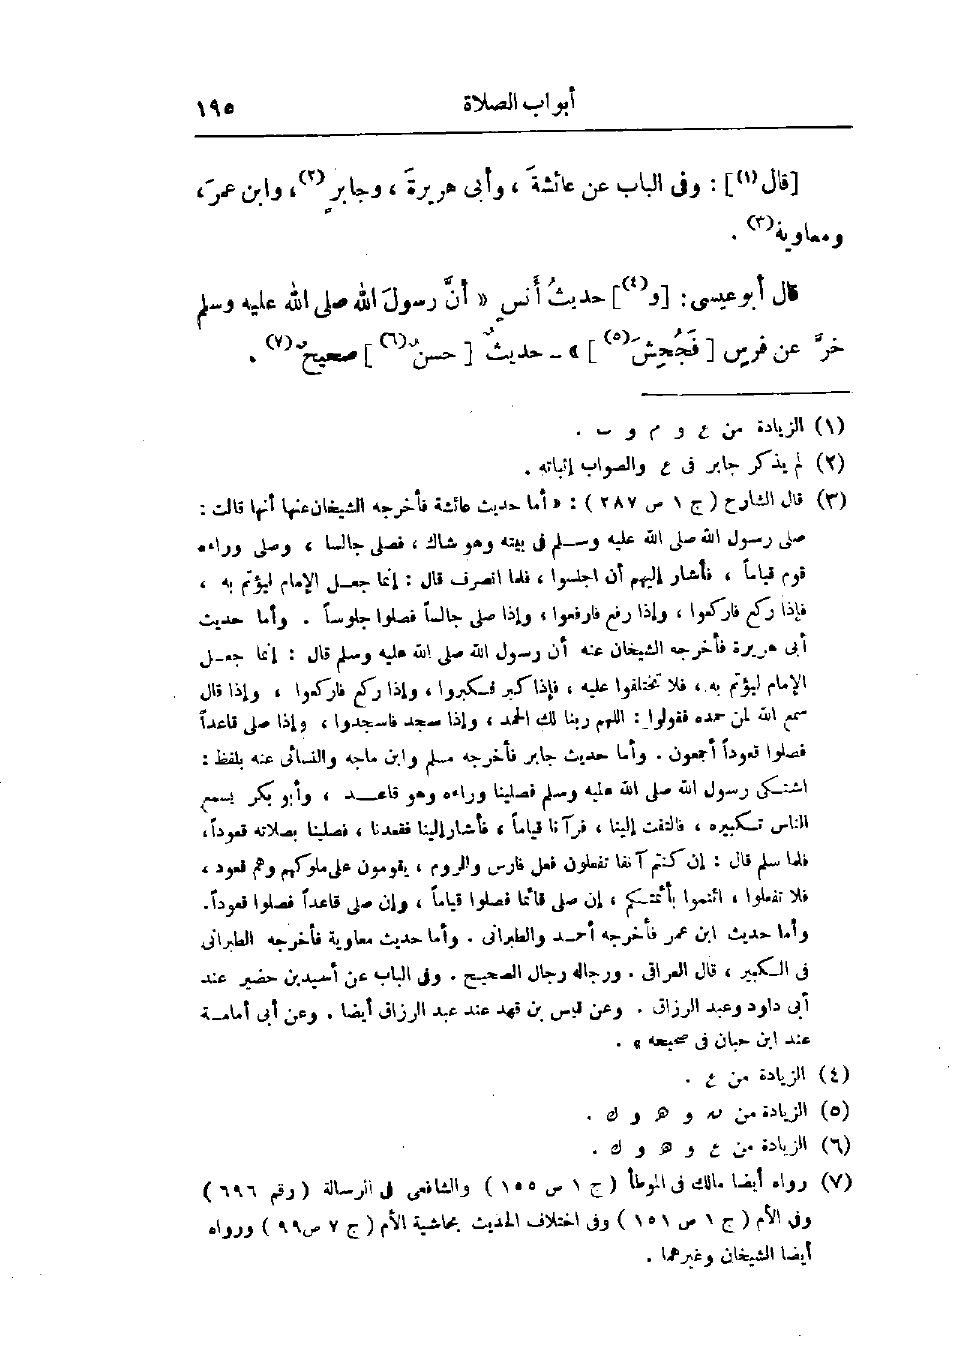 أبواب الصلاة ١٩٥
[قال(١)] : وفى الباب عن عائشةَ ، وأبى هريرةَ ، وجابرٍ(٢)، وابن عمرَ،
ومعاويةَ(٣) .
قال أبو عيسى : [و(٤)] حديثُ أنسٍ « أنَّ رسولَ اللّٰه صلى اللّٰه عليه وسلم
خرَّ عن فرسٍ [ فَجُحِشَ(٥) ] » ــ حديثٌ [ حسنٌ(٦) ] صحيحٌ(٧) .
(١) الزيادة من ع و م و ب .
(٢) لم يذكر جابر فى ع والصواب إثباته .
(٣) قال الشارح ( ج ١ ص ٢٨٧ ) : « أما حديث عائشة فأخرجه الشيخان عنها أنها قالت :
صلى رسول اللّٰه صلى اللّٰه عليه وسلم فى بيته وهو شاك ، فصلى جالسا ، وصلى وراءه
قوم قياماً ، فأشار إليهم أن اجلسوا ، فلما انصرف قال : إنما جعل الإمام ليؤتم به ،
فإذا ركع فاركعوا ، وإذا رفع فارفعوا ، وإذا صلى جالساً فصلوا جلوساً . وأما حديث
أبى هريرة فأخرجه الشيخان عنه أن رسول اللّٰه صلى اللّٰه عليه وسلم قال : إنما جعل
الإمام ليؤتم به ، فلا تختلفوا عليه ، فإذا كبر فكبروا ، وإذا ركع فاركعوا ، وإذا قال
سمع اللّٰه لمن حمده فقولوا : اللهم ربنا لك الحمد ، وإذا سجد فاسجدوا ، وإذا صلى قاعداً
فصلوا قعوداً أجمعون . وأما حديث جابر فأخرجه مسلم وابن ماجه والنسائى عنه بلفظ :
اشتكى رسول اللّٰه صلى اللّٰه عليه وسلم فصلينا وراءه وهو قاعد ، وأبو بكر يسمع
الناس تكبيره ، فالتفت إلينا ، فرآنا قياماً ، فأشار إلينا فقعدنا ، فصلينا بصلاته قعوداً،
فلما سلم قال : إن كنتم آنفا تفعلون فعل فارس والروم ، يقومون على ملوكهم وهم قعود ،
فلا تفعلوا ، ائتموا بأئمتكم ، إن صلى قائما فصلوا قياماً ، وإن صلى قاعداً فصلوا قعوداً.
وأما حديث ابن عمر فأخرجه أحمد والطبرانى . وأما حديث معاوية فأخرجه الطبرانى
فى الكبير ، قال العراقى . ورجاله رجال الصحيح . وفى الباب عن أسيد بن حضير عند
أبى داود وعبد الرزاق . وعن قيس بن قهد عند عبد الرزاق أيضا . وعن أبى أمامة
عند ابن حبان فى صحيحه » .
(٤) الزيادة من ع .
(٥) الزيادة من ﻧ و ﻫ و ك .
(٦) الزيادة من ع و ﻫ و ك .
(٧) رواه أيضا مالك فى الموطأ ( ج ١ ص ١٥٥ ) والشافعى فى الرسالة ( رقم ٦٩٦ )
وفى الأم ( ج ١ ص ١٥١ ) وفى اختلاف الحديث بحاشية الأم ( ج ٧ ص ٩٩ ) ورواه
أيضا الشيخان وغيرهما .